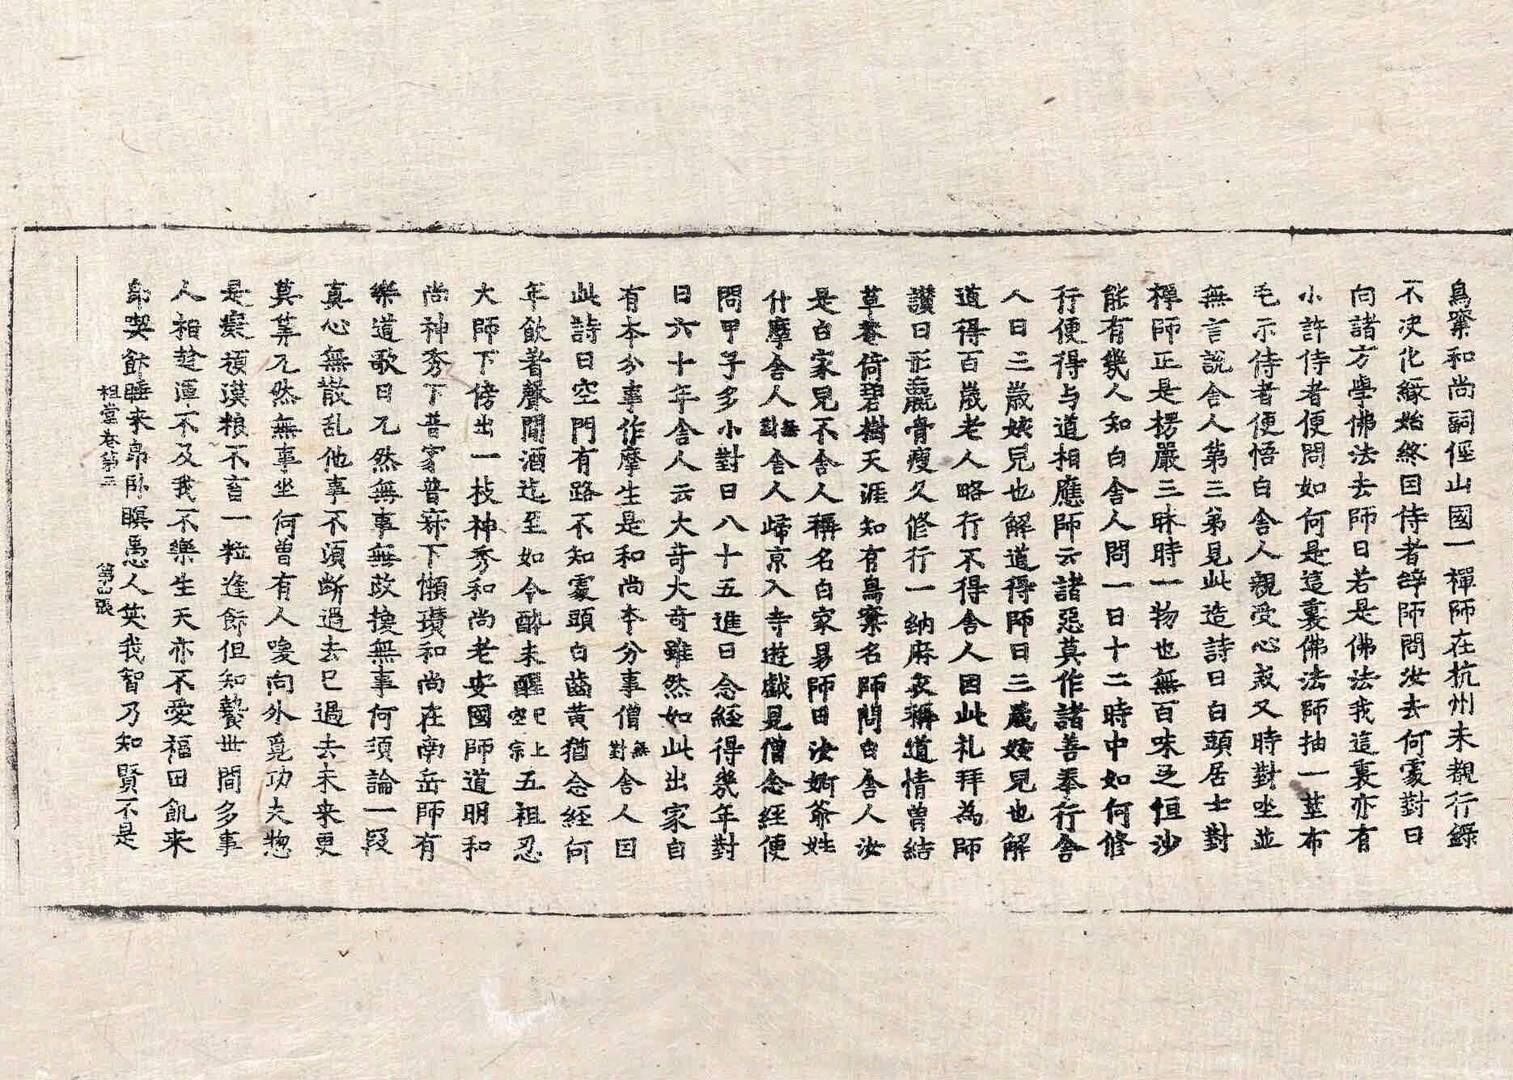 鳥窠和尚詞俓山國一禪師在杭州未覩行錄
不決化緣始終因侍者辞師問汝去何處對曰
向諸方學佛法去師曰若是佛法我這裏亦有
小許侍者便問如何是這裏佛法師抽一莖布
毛示侍者便悟白舍人親受心戒又時對坐並
無言說舍人第三弟見此造詩曰白頭居士對
禪師正是楞嚴三昧時一物也無百味足恒沙
能有幾人知白舍人問一日十二時中如何修
行便得与道相應師云諸惡莫作諸善奉行舍
人曰三歲孩兒也解道得師曰三歲孩兒也解
道得百歲老人略行不得舍人因此礼拜為師
讃曰形羸骨瘦久修行一納麻衣稱道情曾結
草菴倚碧樹天涯知有鳥窠名師問白舍人汝
是白家兒不舍人稱名白家易師曰汝婀爺姓
什摩舍人無對舍人歸京入寺遊戲見僧念經便
問甲子多小對曰八十五進曰念經得幾年對
曰六十年舍人云大奇大奇雖然如此出家自
有本分事作摩生是和尚本分事僧無對舍人因
此詩曰空門有路不知處頭白齒黃猶念經何
年飲著聲聞酒迄至如今醉未醒已上空宗五祖忍
大師下傍出一枝神秀和尚老安國師道明和
尚神秀下普寂普寂下懶瓚和尚在南岳師有
樂道歌曰兀然無事無改換無事何須論一段
真心無散乱他事不須断過去已過去未来更
莫筭兀然無事坐何曽有人喚向外覓功夫惣
是癡頑漢粮不畜一粒逢飰但知䬸世間多事
人相趁渾不及我不樂生天亦不愛福田飢来
即喫飰睡来即臥瞑愚人笑我智乃知賢不是
祖堂卷第三 第 張